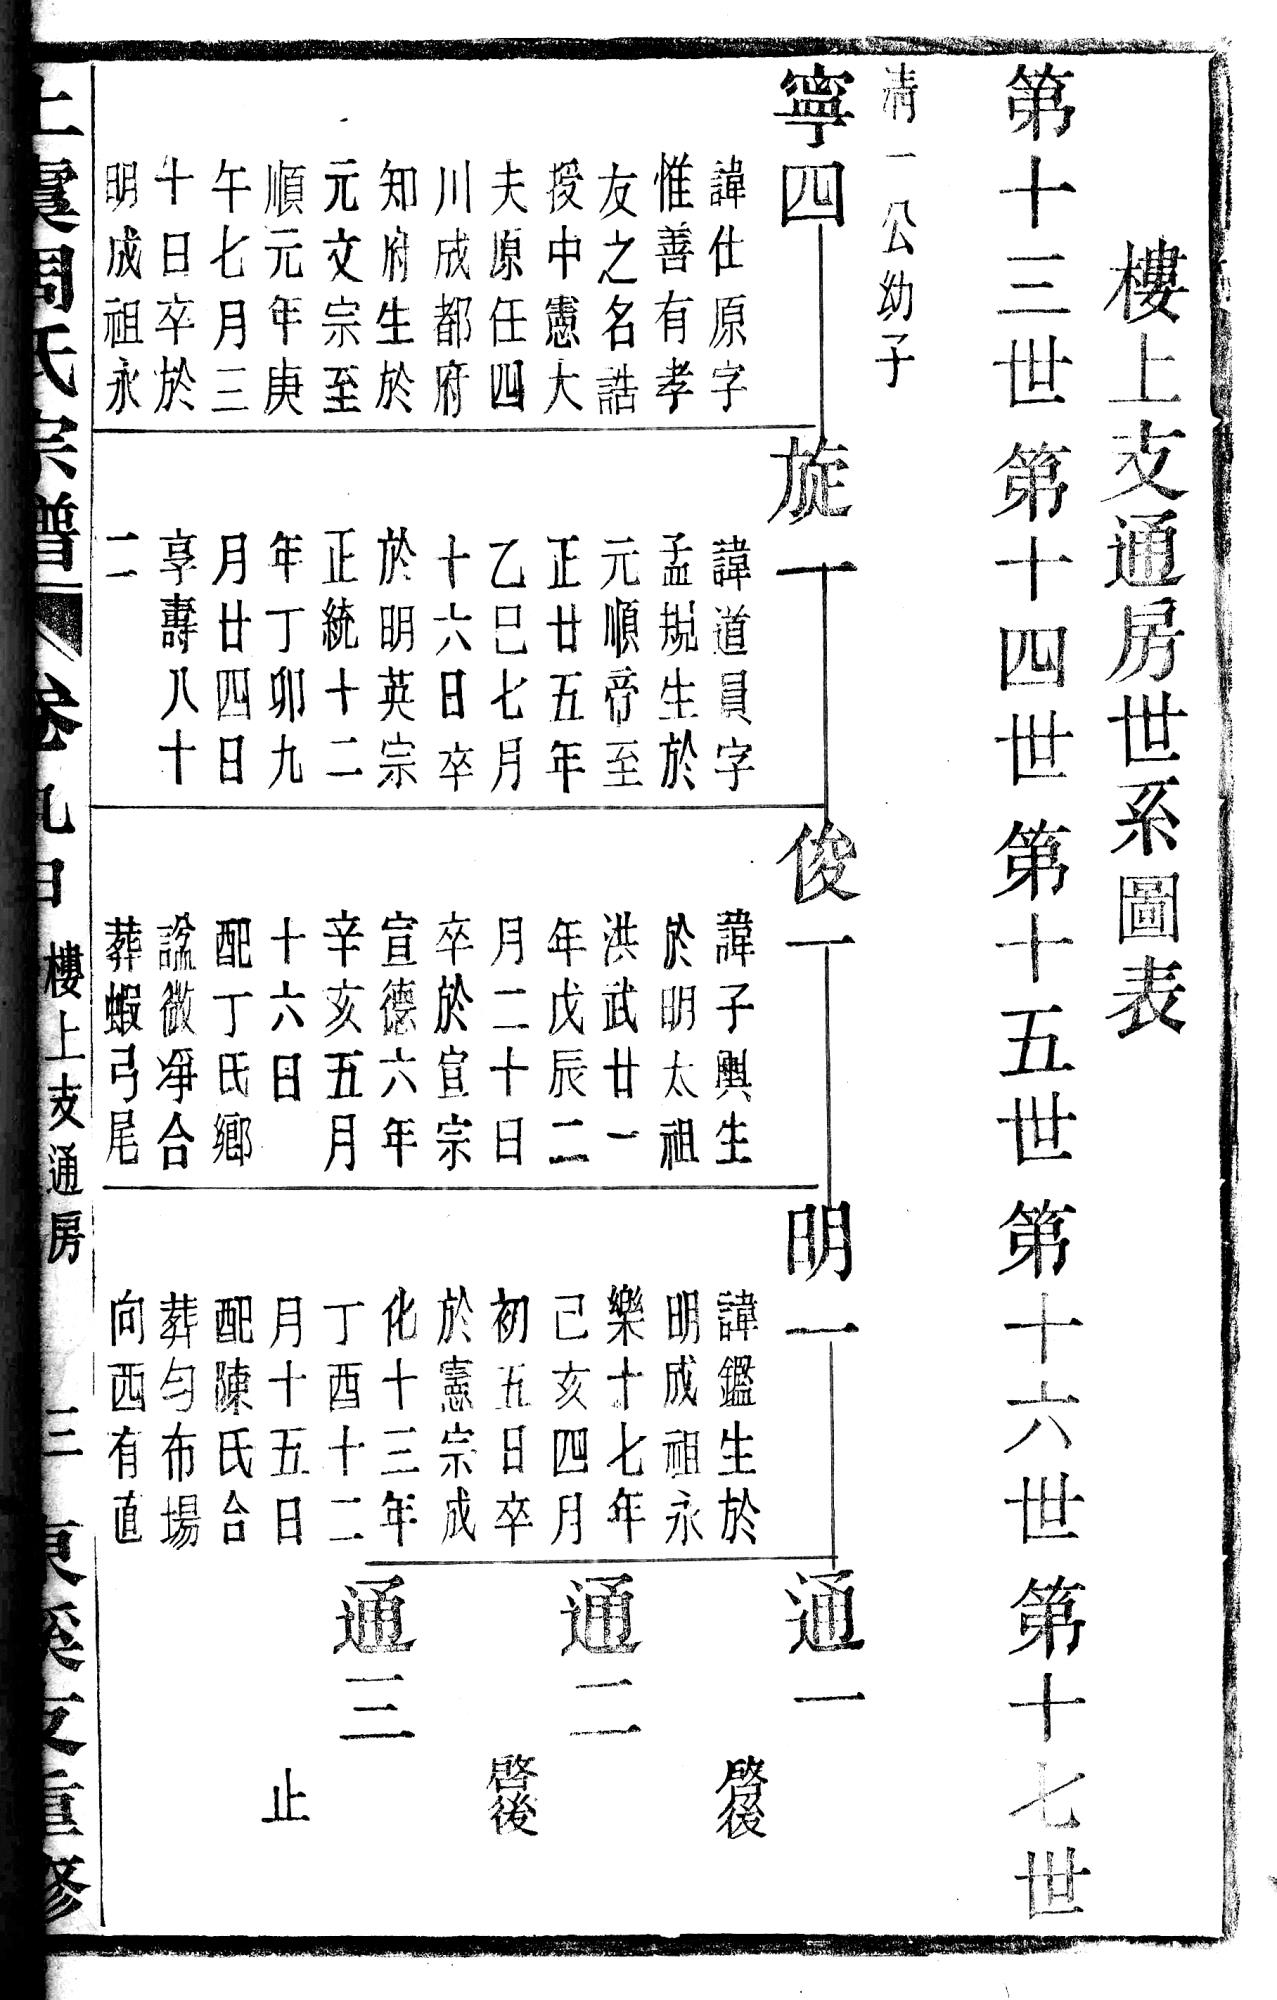 樓上支通房世系圖表
第十三世 第十四世 第十五世 第十六世 第十七世
清一公幼子
寧四
諱仕原字
惟善有孝
友之名誥
授中憲大
夫原任四
川成都府
知府生於
元文宗至
順元年庚
午七月三
十日卒於
明成祖永
旋一
諱道員字
孟規生於
元順帝至
正廿五年
乙巳七月
十六日卒
於明英宗
正統十二
年丁卯九
月廿四日
享壽八十
二
俊一
諱子輿生
於明太祖
洪武廿一
年戊辰二
月二十日
卒於宣宗
宣德六年
辛亥五月
十六日
配丁氏鄉
諡微凈合
葬蝦弓尾
明一
諱鑑生於
明成祖永
樂十七年
己亥四月
初五日卒
於憲宗成
化十三年
丁酉十二
月十五日
配陳氏合
葬勻布場
向西有直
通一
啓後
通二
啓後
通三
止
上虞周氏宗譜 卷九 樓上支通房 三 東溪友重修